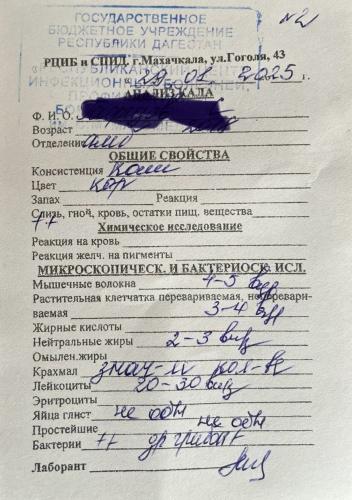 №2
ГОСУДАРСТВЕННОЕ
БЮДЖЕТНОЕ УЧРЕЖДЕНИЕ
РЕСПУБЛИКИ ДАГЕСТАН
РЦИБ и СПИД, г.Махачкала, ул.Гоголя, 43
2025 г.
АНАЛИЗ КАЛА
Ф. И. О.
Возраст
Отделение амб
ОБЩИЕ СВОЙСТВА
Консистенция каш
Цвет кор
Запах Реакция
Слизь, гной, кровь, остатки пищ. вещества
++
Химическое исследование
Реакция на кровь
Реакция желч. на пигменты
МИКРОСКОПИЧЕСК. И БАКТЕРИОСК. ИСЛ.
Мышечные волокна 4-5 в п/з
Растительная клетчатка перевариваемая, неперевари-
ваемая 3-4 в п/з
Жирные кислоты
Нейтральные жиры 2-3 в п/з
Омылен.жиры
Крахмал знач-м кол-ве
Лейкоциты 20-30 в п/з
Эритроциты
Яйца глист не обн
Простейшие не обн
Бактерии ++ др грибы +
Лаборант